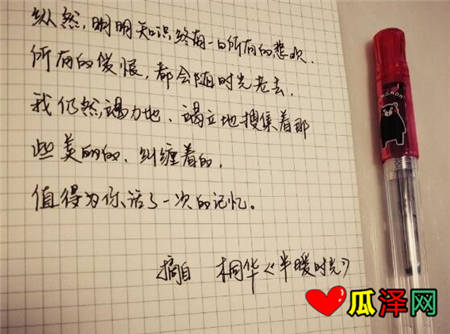 纵然,明明知识终有一日所有的悲欢、
所有的爱恨,都会随时光老去,
我仍然竭力地、竭立地搜集着那
些美丽的、纠缠着的,
值得为你活了一次的记忆。
摘自 桐华《半暖时光》
瓜泽网